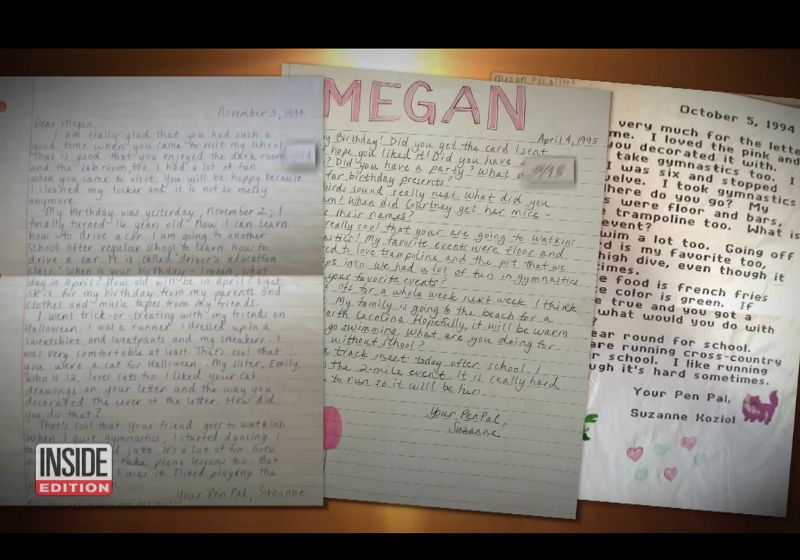 November 3, 1994
Dear Megan,
I am really glad that you had such a
good time when you came to visit my school.
That is good that you enjoyed the dark room
and the lab room too. I had a lot of fun
when you came to visit. You will be happy because
I cleaned my locker and it is not so messy
anymore.
My birthday was yesterday, November 2; I
finally turned 16 years old. Now I can learn
how to drive a car. I am going to another
school after regular school to learn how to
drive a car. It is called "driver's education
class." When is your birthday - I mean, what
day in April? How old will be in April? I got
sk is for my birthday from my parents and
clothes and music tapes from my friends.
I went trick-or-treating with my friends on
Halloween. I was a runner. I dressed up in a
sweatshirt and sweatpants and my sneakers. I
was very comfortable at least. That's cool that
you were a cat for Halloween. My sister, Emily,
who is 12, loves cats too. I liked your cat
drawings on your letter and the way you
decorated the cover of the letter. How did
you do that?
That's cool that your friend goes to Watkins.
When I quit gymnastics, I started dancing. I
jazz. It's a lot of fun. Even
take piano lessons too. But
I was it. I liked playing the
Your Pen Pal, Suzanne
MEGAN
April 4, 1995
y Birthday! Did you get the card I sent
hope you liked it! Did you have a
? Did you have a party? What
for birthday presents?
birds sound really neat. What did you
m! When did Courtney get her mice -
e their names?
really cool that your are going to Watkins
nastics! My favorite events were floor and
ed to love trampoline and the pit that we
ips into. We had a lot of fun in gymnastics
your favorite events?
off for a whole week next week. I think
. My family is going to the beach for a
orth Carolina. Hopefully, it will be warm
go swimming. What are you doing for
without school?
s track meet today after school. I
the 2-mile event. It is really hard
to run so it will be fun.
Your Pen Pal,
Suzanne
October 5, 1994
very much for the lette
me. I loved the pink and
you decorated it with.
take gymnastics too. I
I was six and stopped
welve. I took gymnastics
here do you go? My
s were floor and bars,
trampoline too. What is
event?
wim a lot too. Going off
rd is my favorite too,
high dive, even though it
times.
e food is french fries
e color is green. If
e true and you got a
what would you do with
?
ear round for school.
are running cross-country
r school. I like running
ugh it's hard sometimes.
Your Pen Pal,
Suzanne Koziol
INSIDE
EDITION